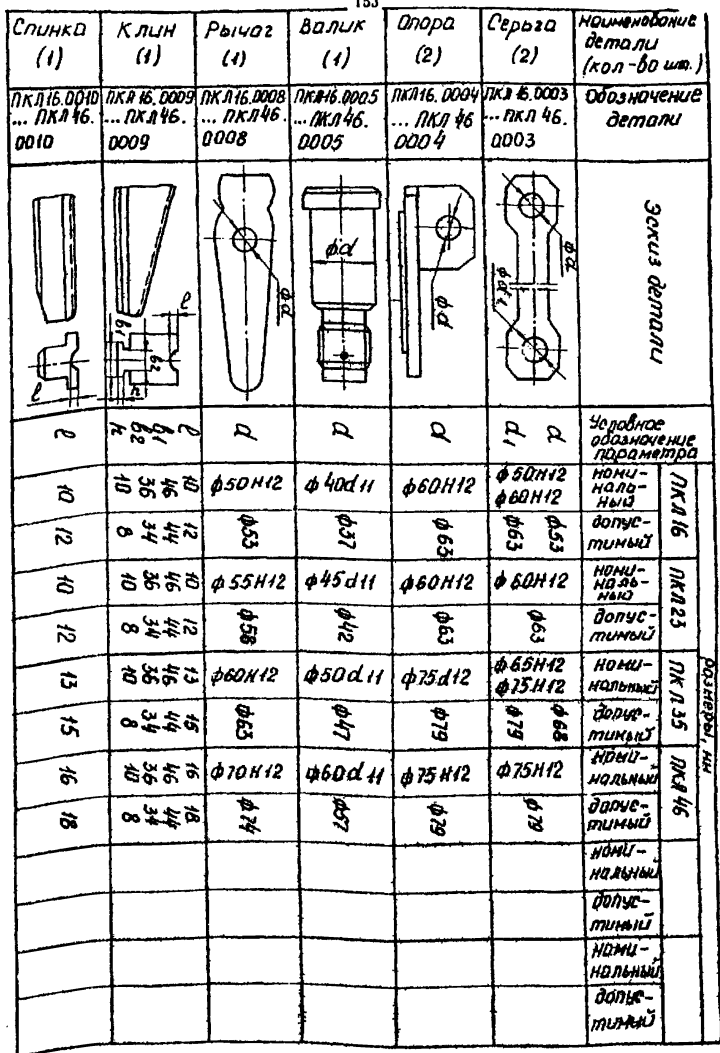 153
Спинка (1) | Клин (1) | Рычаг (1) | Валик (1) | Опора (2) | Серьга (2) | Наименование детали (кол-во шт.)
ПКЛ16.0010 ... ПКЛ46. 0010 | ПКЛ16.0009 ... ПКЛ46. 0009 | ПКЛ16.0008 ... ПКЛ46. 0008 | ПКЛ16.0005 ... ПКЛ46. 0005 | ПКЛ16.0004 ... ПКЛ46 0004 | ПКЛ16.0003 ... ПКЛ46. 0003 | Обозначение детали
ℓ | в1 в2 h ℓ | ϕd | ϕd | ϕd | ϕd ϕd1 | Эскиз детали
ℓ | ℓ в1 в2 h | d | d | d | d d1 | Условное обозначение параметра
размеры, мм
10 | 10 46 36 10 | ϕ50H12 | ϕ40d11 | ϕ60H12 | ϕ50H12 ϕ60H12 | номинальный | ПКЛ16
12 | 12 44 34 8 | ϕ53 | ϕ37 | ϕ63 | ϕ53 ϕ63 | допустимый
10 | 10 46 36 10 | ϕ55H12 | ϕ45d11 | ϕ60H12 | ϕ60H12 | номинальный | ПКЛ23
12 | 12 44 34 8 | ϕ58 | ϕ42 | ϕ63 | ϕ63 | допустимый
13 | 13 46 36 10 | ϕ60H12 | ϕ50d11 | ϕ75d12 | ϕ65H12 ϕ75H12 | номинальный | ПКЛ35
15 | 15 44 34 8 | ϕ63 | ϕ47 | ϕ79 | ϕ68 ϕ79 | допустимый
16 | 16 46 36 10 | ϕ70H12 | ϕ60d11 | ϕ75H12 | ϕ75H12 | номинальный | ПКЛ46
18 | 18 44 34 8 | ϕ74 | ϕ57 | ϕ79 | ϕ79 | допустимый
номинальный
допустимый
номинальный
допустимый